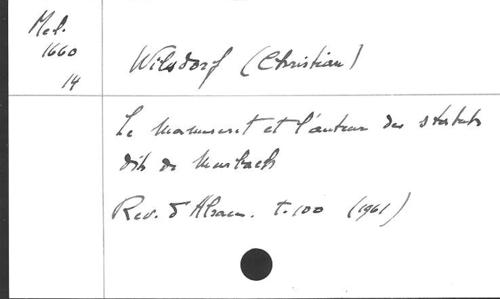 Mel.
1660
14
Wilsdorf (Christian)
Le manuscrit et l'auteur des statuts
dits de Murbach
Rev. d'Alsace. t.100 (1961)